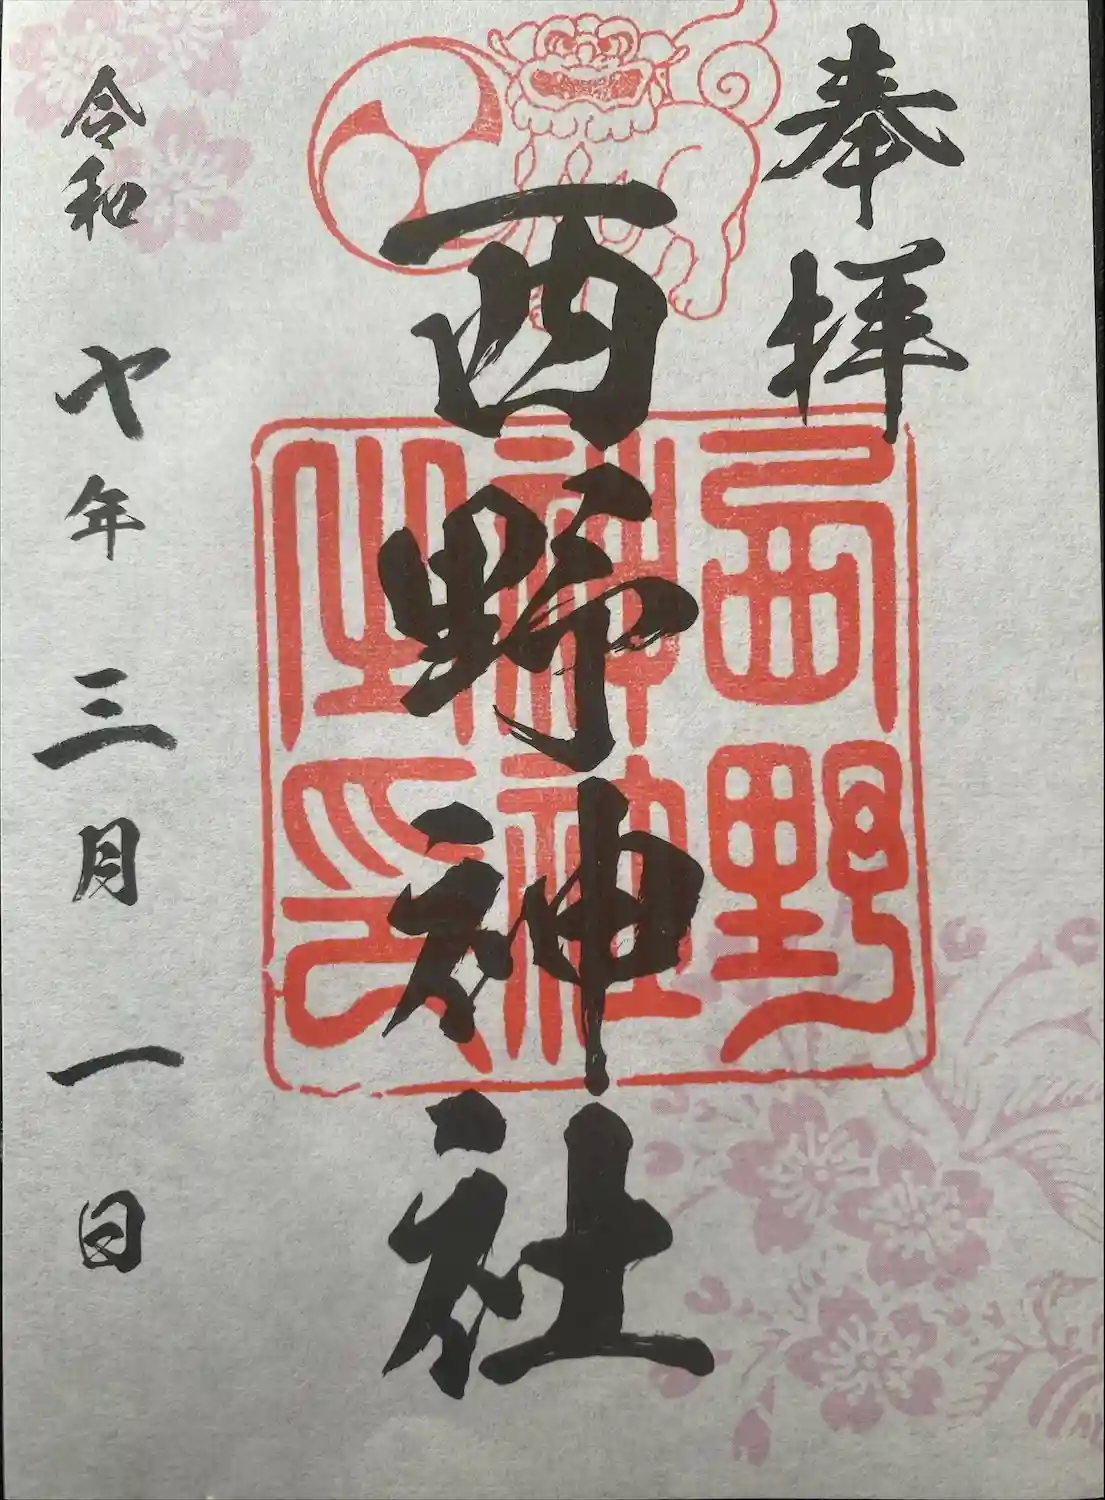 奉拝
西野神社
令和 七年 三月 一日
西野
神社
之印